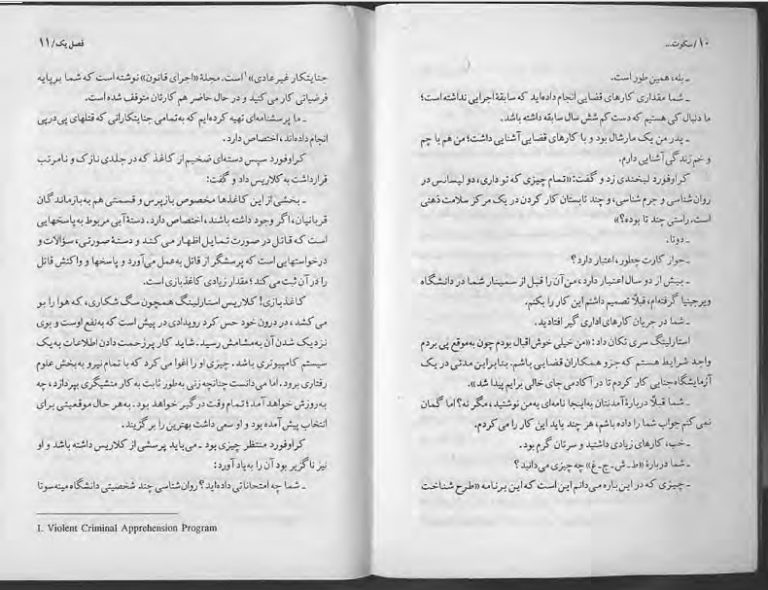 ۱۰ / سکوت...
ـ بله، همین طور است.
ـ شما مقداری کارهای قضایی انجام داده‌اید که سابقهٔ اجرایی نداشته است؛
ما دنبال کی هستیم که دست کم شش سال سابقه داشته باشد.
ـ پدر من یک مارشال بود و با کارهای قضایی آشنایی داشت؛ من هم با چم
و خم زندگی آشنایی دارم.
کراوفورد لبخندی زد و گفت: «تمام چیزی که تو داری، دو لیسانس در
روان شناسی و جرم شناسی، و چند تابستان کار کردن در یک مرکز سلامت ذهنی
است. راستی چند تا بوده؟»
ـ دوتا.
ـ جواز کارت چطور، اعتبار دارد؟
ـ بیش از دو سال اعتبار دارد، من آن را قبل از سمینار شما در دانشگاه
ویرجینیا گرفته‌ام، قبلاً تصمیم داشتم این کار را بکنم.
ـ شما در جریان کارهای اداری گیر افتادید.
استارلینگ سری تکان داد: «من خیلی خوش اقبال بودم چون به‌موقع پی بردم
واجد شرایط هستم که جزو همکاران قضایی باشم. بنابراین مدتی در یک
آزمایشگاه جنایی کار کردم تا در آکادمی جای خالی برایم پیدا شد.»
ـ شما قبلاً دربارهٔ آمدنتان به‌اینجا نامه‌ای به‌من نوشتید، مگر نه؟ اما گمان
نمی کنم جواب شما را داده باشم، هر چند باید این کار را می کردم.
ـ خب، کارهای زیادی داشتید و سرتان گرم بود.
ـ شما دربارهٔ «ط ـ ش ـ ج ـ غ» چه چیزی می دانید؟
ـ چیزی که در این باره می دانم این است که این برنامه «طرح شناخت
فصل یک / ۱۱
جنایتکار غیر عادی»۱ است. مجلهٔ «اجرای قانون» نوشته است که شما برپایه
فرضیاتی کار می کنید و در حال حاضر هم کارتان متوقف شده است.
ـ ما پرسشنامه‌ای تهیه کرده‌ایم که به‌تمامی جنایتکارانی که قتلهای پی درپی
انجام داده‌اند، اختصاص دارد.
کراوفورد سپس دسته‌ای ضخیم از کاغذ که در جلدی نازک و نامرتب
قرار داشت به کلاریس داد و گفت:
ـ بخشی از این کاغذها مخصوص بازپرس و قسمتی هم به بازماندگان
قربانیان، اگر وجود داشته باشند، اختصاص دارد. دستهٔ آبی مربوط به پاسخهایی
است که قاتل در صورت تمایل اظهار می کند و دستهٔ صورتی، سؤالات و
درخواستهایی است که پرسشگر از قاتل به‌عمل می آورد و پاسخها و واکنش قاتل
را در آن ثبت می کند؛ مقدار زیادی کاغذبازی است.
کاغذ بازی! کلاریس استارلینگ همچون سگ شکاری، که هوا را بو
می کشد، در درون خود حس کرد رویدادی در پیش است که به‌نفع اوست و بوی
نزدیک شدن آن به‌مشامش رسید. شاید کار پرزحمت دادن اطلاعات به یک
سیستم کامپیوتری باشد. چیزی او را اغوا می کرد که با تمام نیرو به بخش علوم
رفتاری برود. اما می دانست چنانچه زنی به‌طور ثابت به کار منشیگری بپردازد، چه
به‌روزش خواهد آمد؛ تمام وقت درگیر خواهد بود. به‌هر حال موقعیتی برای
انتخاب پیش آمده بود و او سعی داشت بهترین را برگزیند.
کراوفورد منتظر چیزی بود ـ می باید پرسشی از کلاریس داشته باشد و او
نیز ناگزیر بود آن را به‌یاد آورد:
ـ شما چه امتحاناتی داده‌اید؟ روان شناسی چند شخصیتی دانشگاه مینه سوتا
1. Violent Criminal Apprehension Program